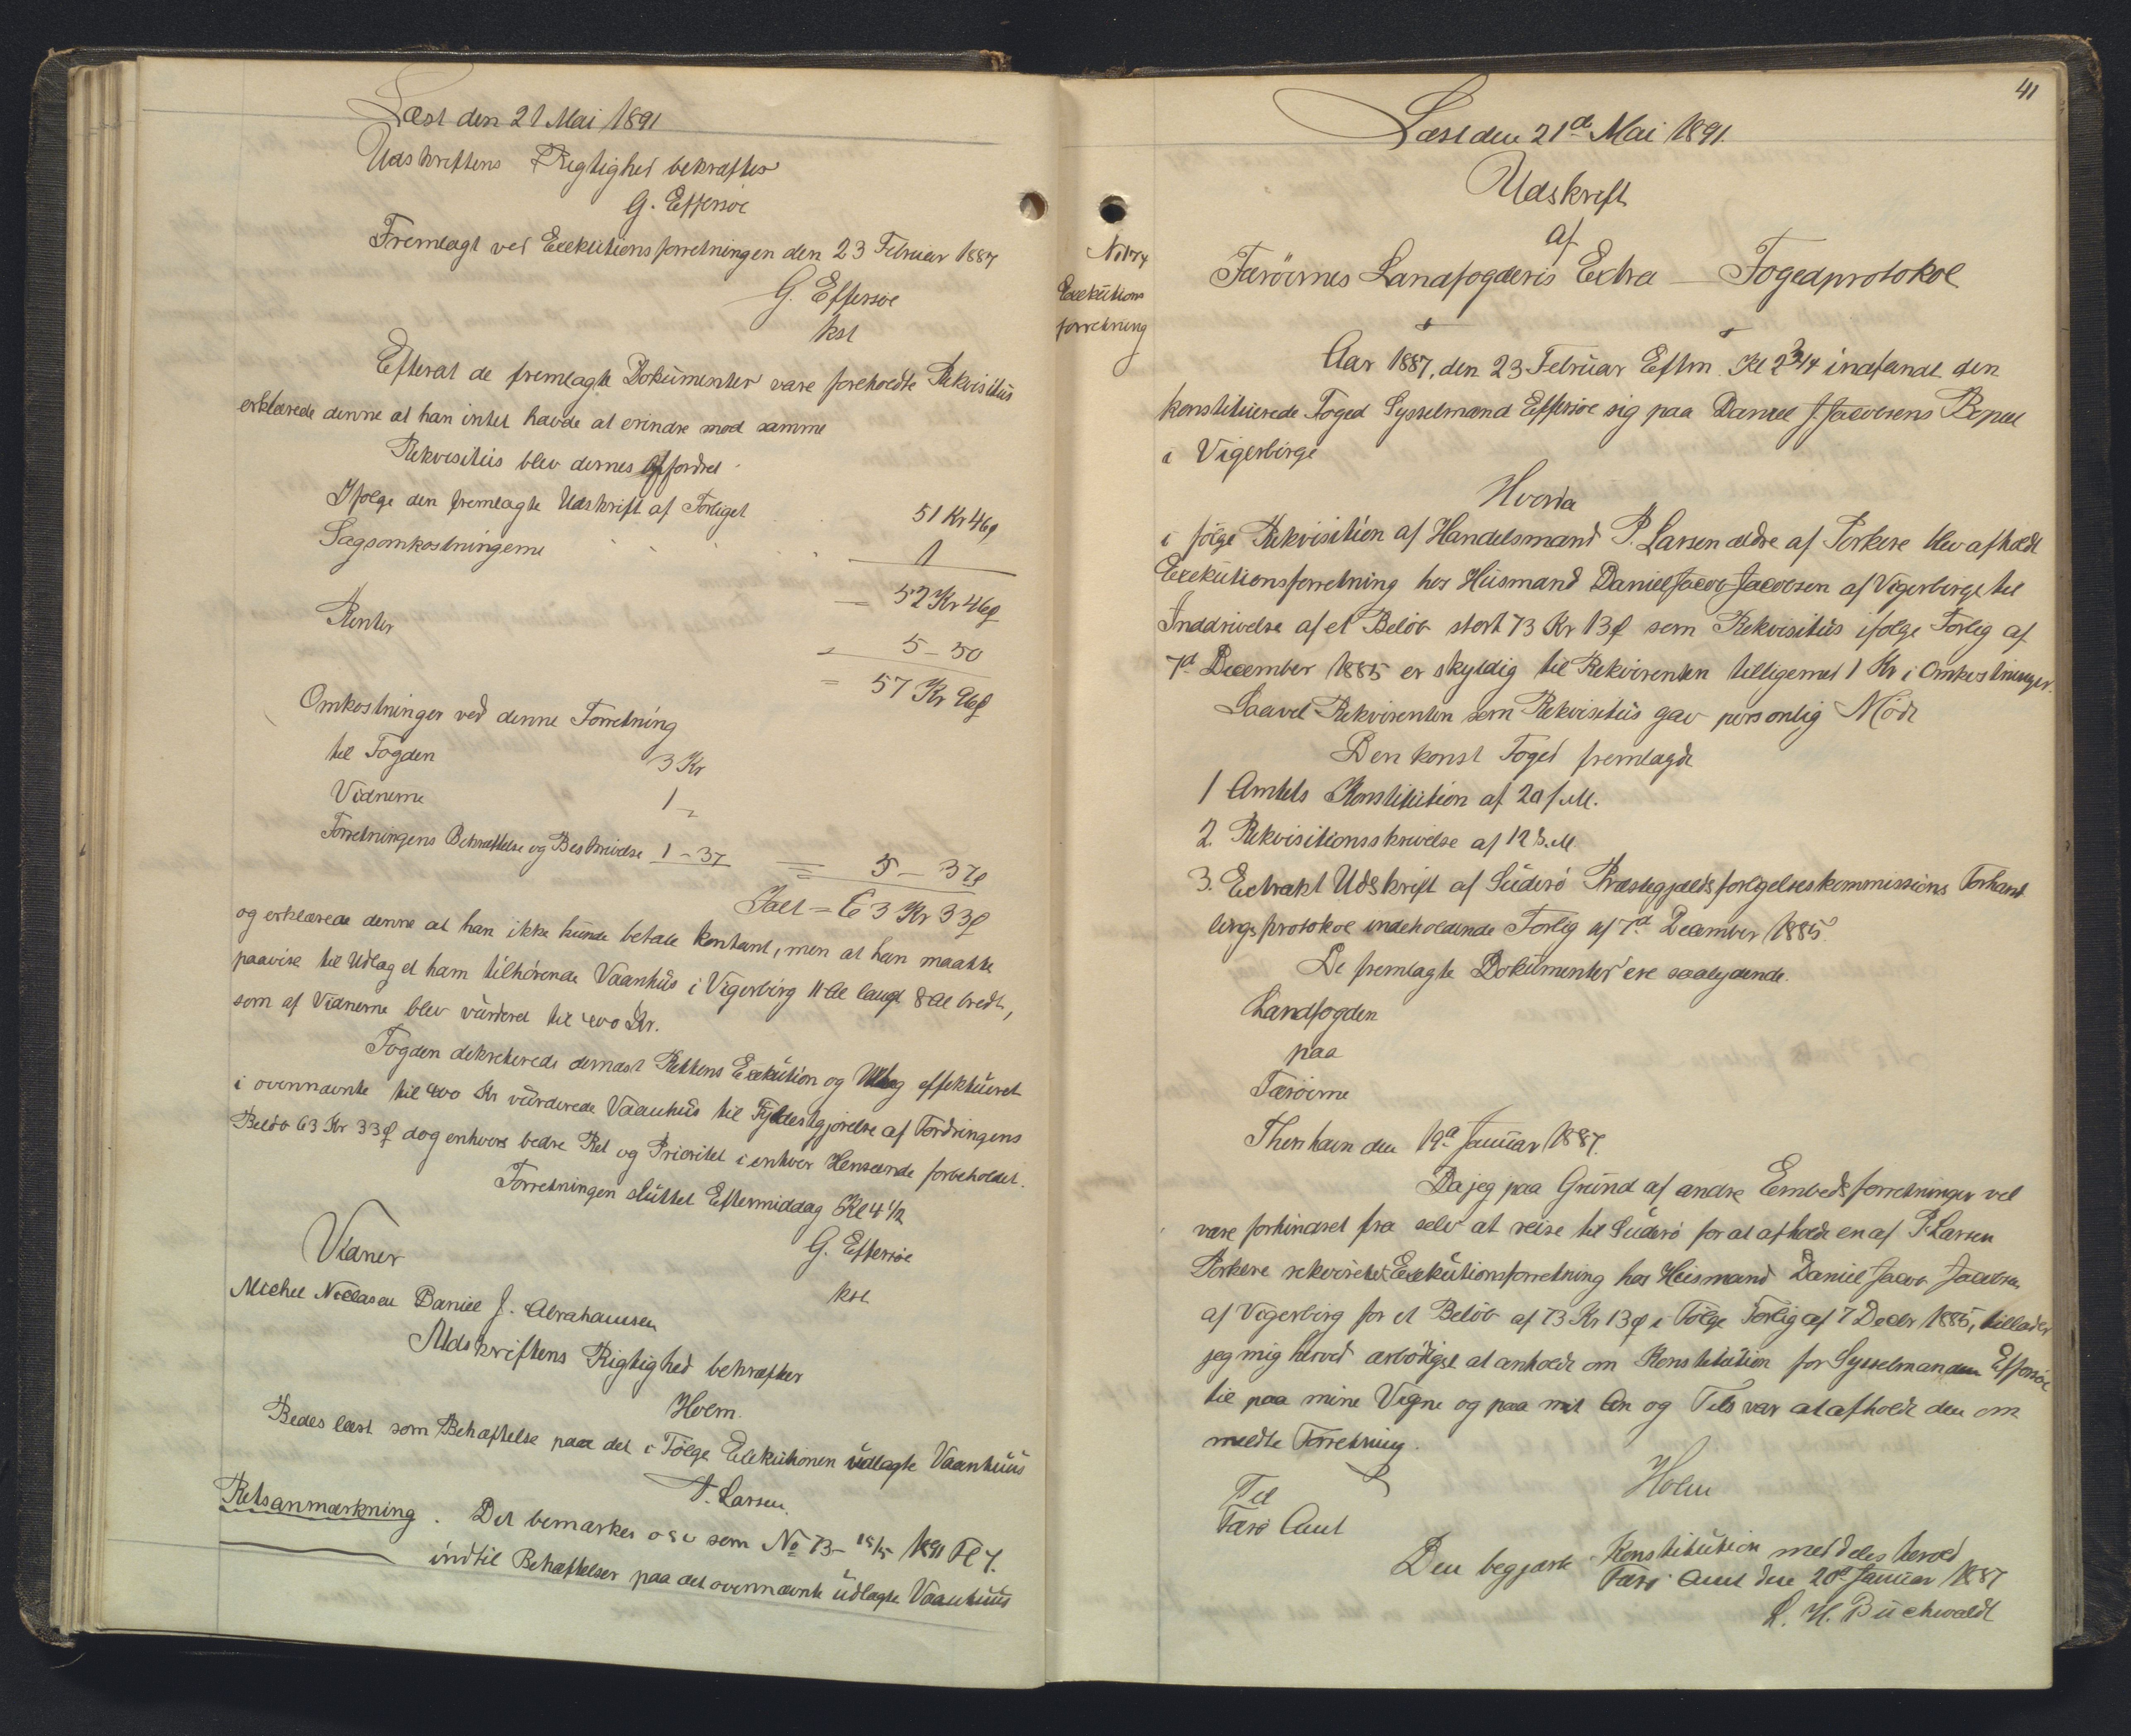 Læst den 21 Mai 1891
Udskriftens Rigtighed bekræftes
G. Effersöe
Fremlagt ved Exekutionsforretningen den 23 Februar 1887
G. Effersøe
kst
Efterat de fremlagte Dokumenter vare foreholdte Rekvisitus
erklærede denne at han intet havde at erindre mod samme
Rekvisitus blev dernæs affordret
Ifølge den fremlagte Udskrift af Forliget 51 Kr 46 ø
Sagsomkostningerne 1
= 52 Kr 46 ø
Renter 5 - 50
= 57 Kr 96 ø
Omkostninger ved denne Forretning
til Fogden 3 Kr
Vidnerne 1 -
Forretningens Bekræftelse og Beskrivelse 1 - 37 = 5 - 37 ø
Ialt = 63 Kr 33 ø
og erklærede denne at han ikke kunde betale kontant, men at han maatte
paavise til Udlæg et ham tilhørende Vaanhus i Vigerbirg 11 Al langt 8 Al bredt,
som af Vidnerne blev vurderet til 400 Kr.
Fogden dekreterede dernæst Rettens Exekution og Udlæg effektueret
i ovennævnte til 400 Kr vurderede Vaanhus til Fyldestgjørelse af Fordringens
Beløb 63 Kr 33 ø dog enhvers bedre Ret og Prioritet i enhver Henseende forbeholdet.
Forretningen sluttet Eftermiddag Kl 4 1/2
Vidner G. Effersøe
kst
Michel Niclasen Daniel J. Abrahamsen
Udskriftens Rigtighed bekræfter
Holm.
Bedes læst som Behæftelse paa det i Følge Exekutionen udlagte Vaanhuus
P. Larsen.
Retsanmærkning. Det bemærkes o s v som No 73 - 15/5 1891 Fl 7.
indtil Behæftelser paa det ovennævnte udlagte Vaanhuus
41
Læst den 21d Mai 1891.
Udskrift
af
No 174
Færöernes Landfogderis Extra - Fogedprotokol
Exekutions
forretning
Aar 1887, den 23 Februar Eftm. Kl 2 3/4 indfandt den
konstituerede Foged Sysselmand Effersöe sig paa Daniel J. Jacobsens Bopæl
i Vigerbirge
Hvorda
i følge Rekvisition af Handelsmand P. Larsen ældre af Porkere blev afholdt
Exekutionsforretning hos Husmand Daniel Jacob Jacobsen af Vigerbirge til
Inddrivelse af et Beløb stort 73 Kr 13 ø som Rekvisitus ifølge Forlig af
7d December 1885 er skyldig til Rekvirenten tilligemed 1 Kr i Omkostninger.
Saavel Rekvirenten som Rekvisitus gav personlig Möde
Den konst Foged fremlagde
1 Amtets Konstitution af 20 f.M.
2. Rekvisitionsskrivelse af 12 d.M.
3. Extrakt Udskrift af Suderö Præstegjælds forligelseskommissions Forhand
lingsprotokol indeholdende Forlig af 7d December 1885.
De fremlagte Dokumenter ere saalydende.
Landfogden
paa
Færöerne
Thorshavn den 19d Januar 1887.
Da jeg paa Grund af andre Embedsforretninger vil
være forhindret fra selv at reise til Suderö for at afholde en af P. Larsen
Porkere rekvireret Exekutionsforretning hos Husmand Daniel Jacob Jacobsen
af Vigerbirg for et Beløb af 73 Kr 13 ø i Følge Forlig af 7 Decbr 1885, tillader
jeg mig herved ærbödigst at anholde om Konstitution for Sysselmanden Effersöe
til paa mine Vegne og paa mit An og Tilsvar at afholde den om
meldte Forretning.
Holm
Til
Færö Amt
Den begjærte Konstitution meddeles herved
Færö Amt den 20d Januar 1887
L. H. Buchwaldt